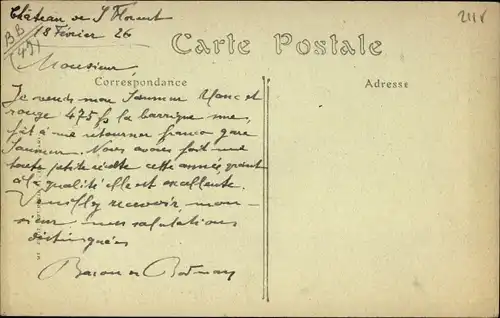 Château de St Florent
18 Février 26
BB
(49)
2118
Carte Postale
Monsieur
Correspondance
Adresse
Je vends mon Saumur blanc et
rouge 475 fs la barrique nue,
fût à me retourner franco gare
Saumur. Nous avons fait une
toute petite récolte cette année, quant
à la qualité elle est excellente.
Veuillez recevoir, mon-
sieur mes salutations
distinguées
Baron de